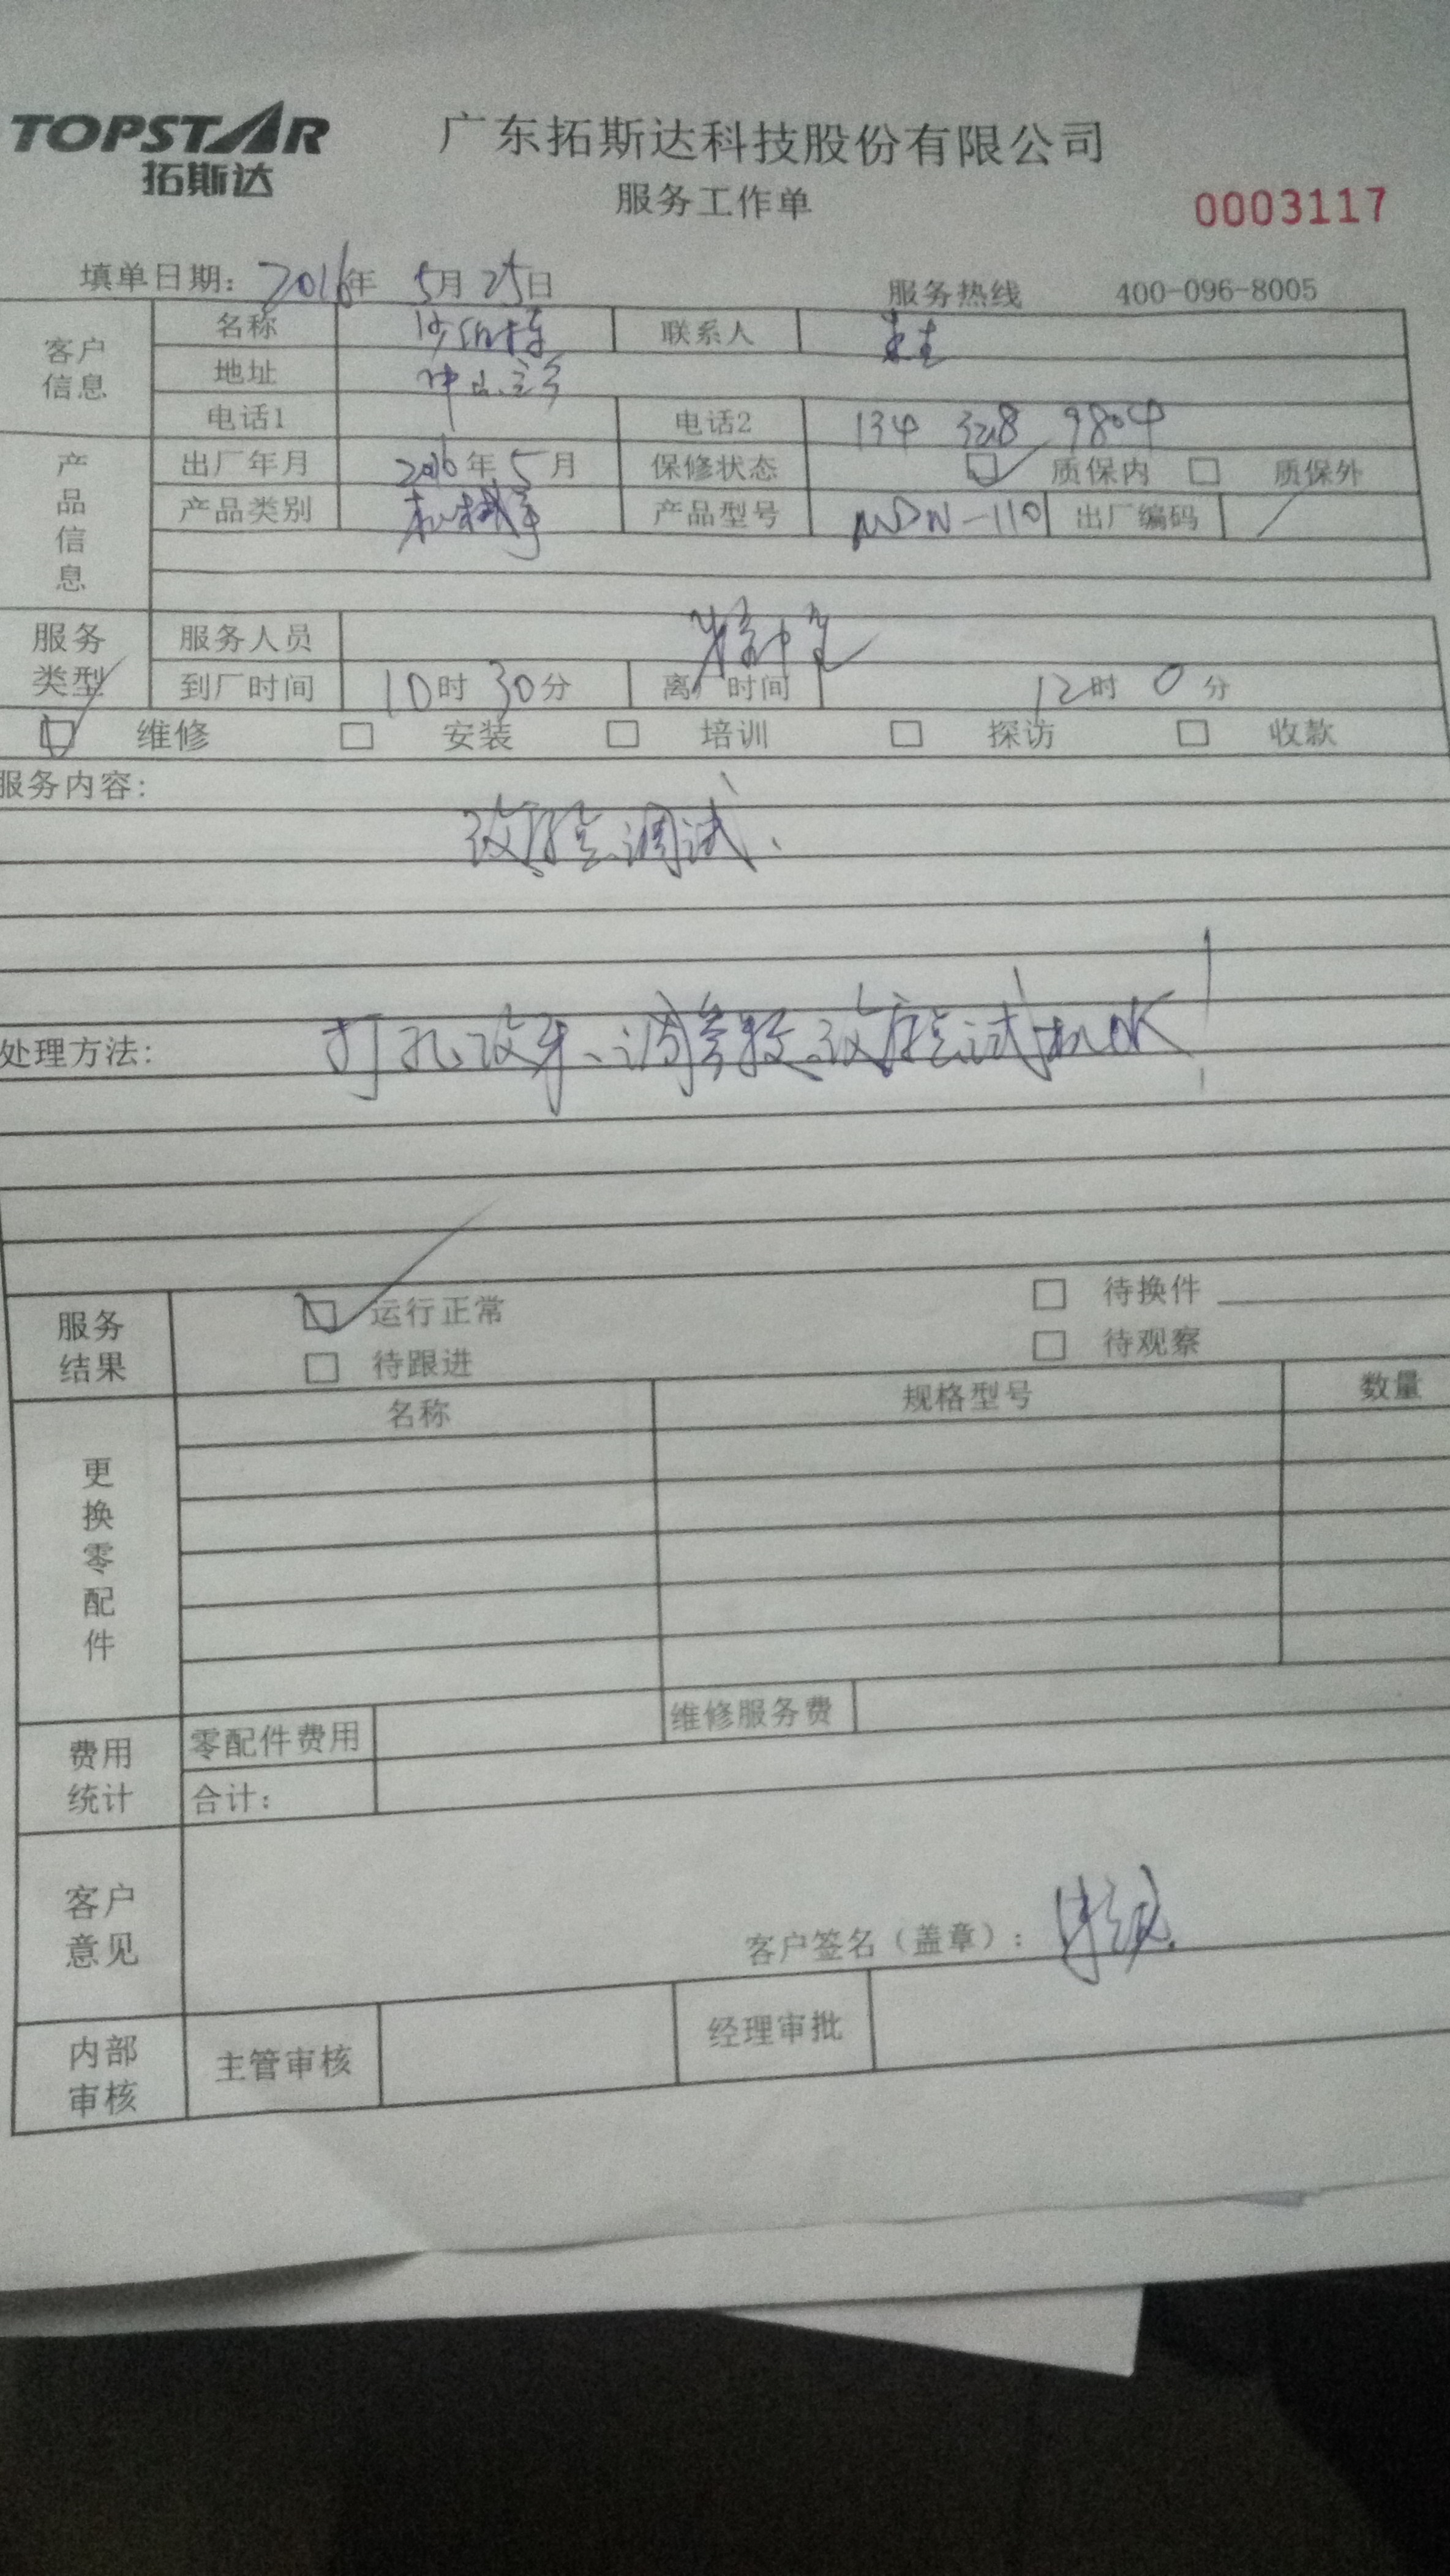 TOPSTAR
拓斯达
广东拓斯达科技股份有限公司
服务工作单
0003117
填单日期: 2016年 5月 25日
服务热线 400-096-8005
客户信息
名称 联系人
地址 中山
电话1 电话2 134 328 9804
产品信息
出厂年月 2016年5月 保修状态 质保内 质保外
产品类别 机械手 产品型号 出厂编码
服务类型
服务人员
到厂时间 10时30分 离厂时间 12时0分
维修 安装 培训 探访 收款
服务内容:
调试、
处理方法: 打孔、改 、调参数、试机OK!
服务结果
运行正常 待换件
待跟进 待观察
更换零配件
名称 规格型号 数量
费用统计
零配件费用 维修服务费
合计:
客户意见
客户签名(盖章):
内部审核
主管审核 经理审批